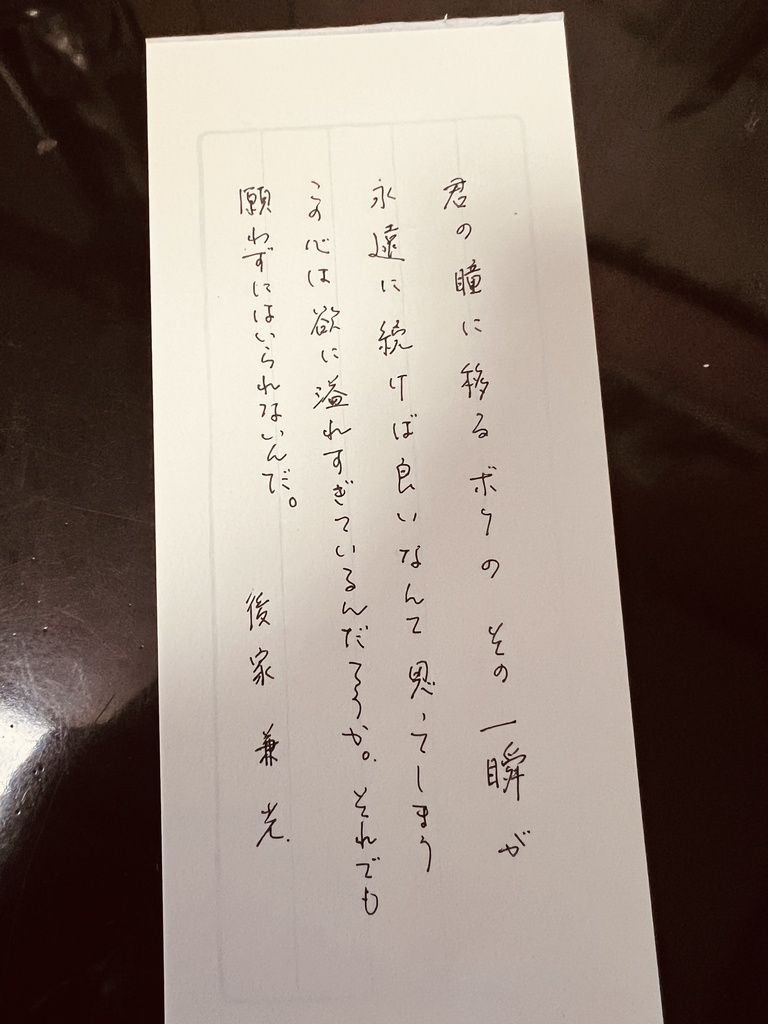 君の瞳に移るボクの その一瞬が
永遠に続けば良いなんて思ってしまう
この心は欲に溢れすぎているんだろうか。それでも
願わずにはいられないんだ。 後家兼光.